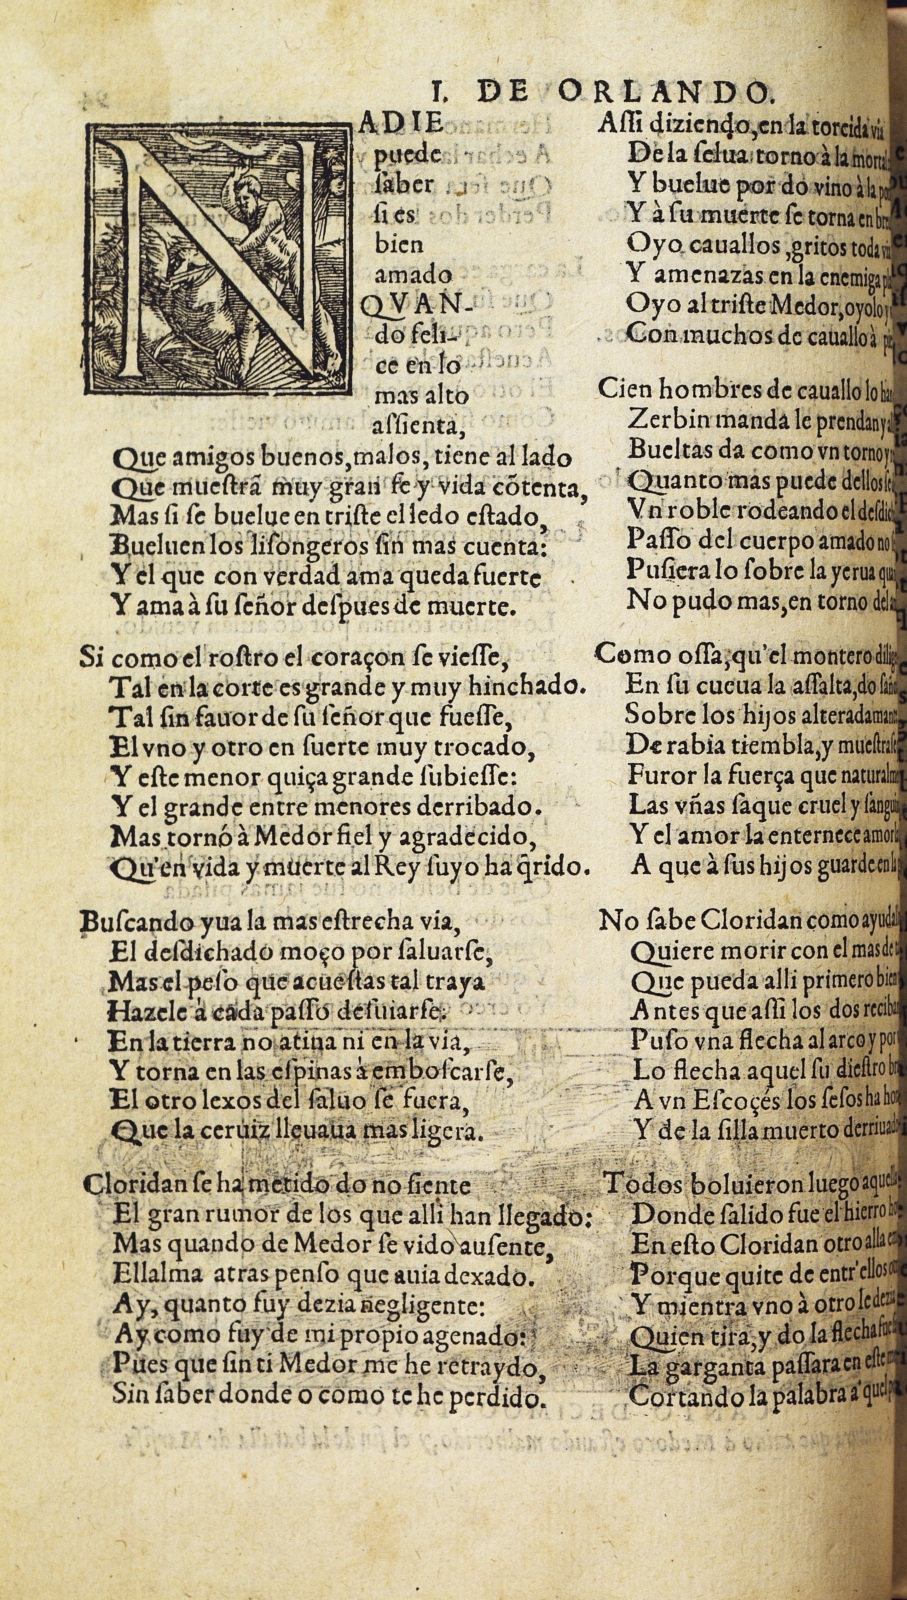 I. DE ORLANDO.
NADIE
puede
ſaber
ſi es
bien
amado
QVAN-
do feli-
ce en lo
mas alto
aſsienta,
Que amigos buenos, malos, tiene al lado
Que mueſtrã muy gran fe y vida cõtenta,
Mas ſi ſe buelue en triſte el ledo eſtado,
Bueluen los liſongeros ſin mas cuenta:
Y el que con verdad ama queda fuerte
Y ama à ſu ſeñor deſpues de muerte.
Si como el roſtro el coraçon ſe vieſſe,
Tal en la corte es grande y muy hinchado.
Tal ſin fauor de ſu ſeñor que fueſſe,
El vno y otro en ſuerte muy trocado,
Y eſte menor quiça grande ſubieſſe:
Y el grande entre menores derribado.
Mas tornó à Medor fiel y agradecido,
Qu'en vida y muerte al Rey ſuyo ha q̃rido.
Buſcando yua la mas eſtrecha via,
El deſdichado moço por ſaluarſe,
Mas el peſo que acueſtas tal traya
Hazele à cada paſſo deſuiarſe:
En la tierra no atina ni en la via,
Y torna en las eſpinas à emboſcarſe,
El otro lexos del ſaluo ſe fuera,
Que la ceruiz lleuaua mas ligera.
Cloridan ſe ha metido do no ſiente
El gran rumor de los que alli han llegado:
Mas quando de Medor ſe vido auſente,
El lalma atras penſo que auia dexado.
Ay, quanto fuy dezia negligente:
Ay como fuy de mi propio agenado:
Pues que ſin ti Medor me he retraydo,
Sin ſaber donde o como te he perdido.
Aſſi diziendo, en la torcida via
De la ſelua torno à la
Y buelue por do vino à la
Y à ſu muerte ſe torna en
Oyo cauallos, gritos toda
Y amenazas en la enemiga
Oyo al triſte Medor, oyolo
Con muchos de cauallo à
Cien hombres de cauallo lo
Zerbin manda le prendan y
Bueltas da como vn torno y
Quanto mas puede dellos
Vn roble rodeando el
Paſſo del cuerpo amado no
Puſiera lo ſobre la yerua
No pudo mas, en torno
Como oſſa, qu'el montero
En ſu cueua la aſſalta, do
Sobre los hijos
De rabia tiembla, y
Furor la fuerça que
Las vñas ſaque cruel y
Y el amor la enternece
A que à ſus hijos guarde en
No ſabe Cloridan como
Quiere morir con el mas
Que pueda alli primero
Antes que aſſi los dos
Puſo vna flecha al arco y
Lo flecha aquel ſu dieſtro
A vn Eſcoçés los ſeſos ha
Y de la ſilla muerto
Todos boluieron luego
Donde ſalido fue el hierro
En eſto Cloridan otro alla
Porque quite de entr'ellos
Y mientra vno à otro le
Quien tira, y do la flecha
La garganta paſſara en
Cortando la palabra a